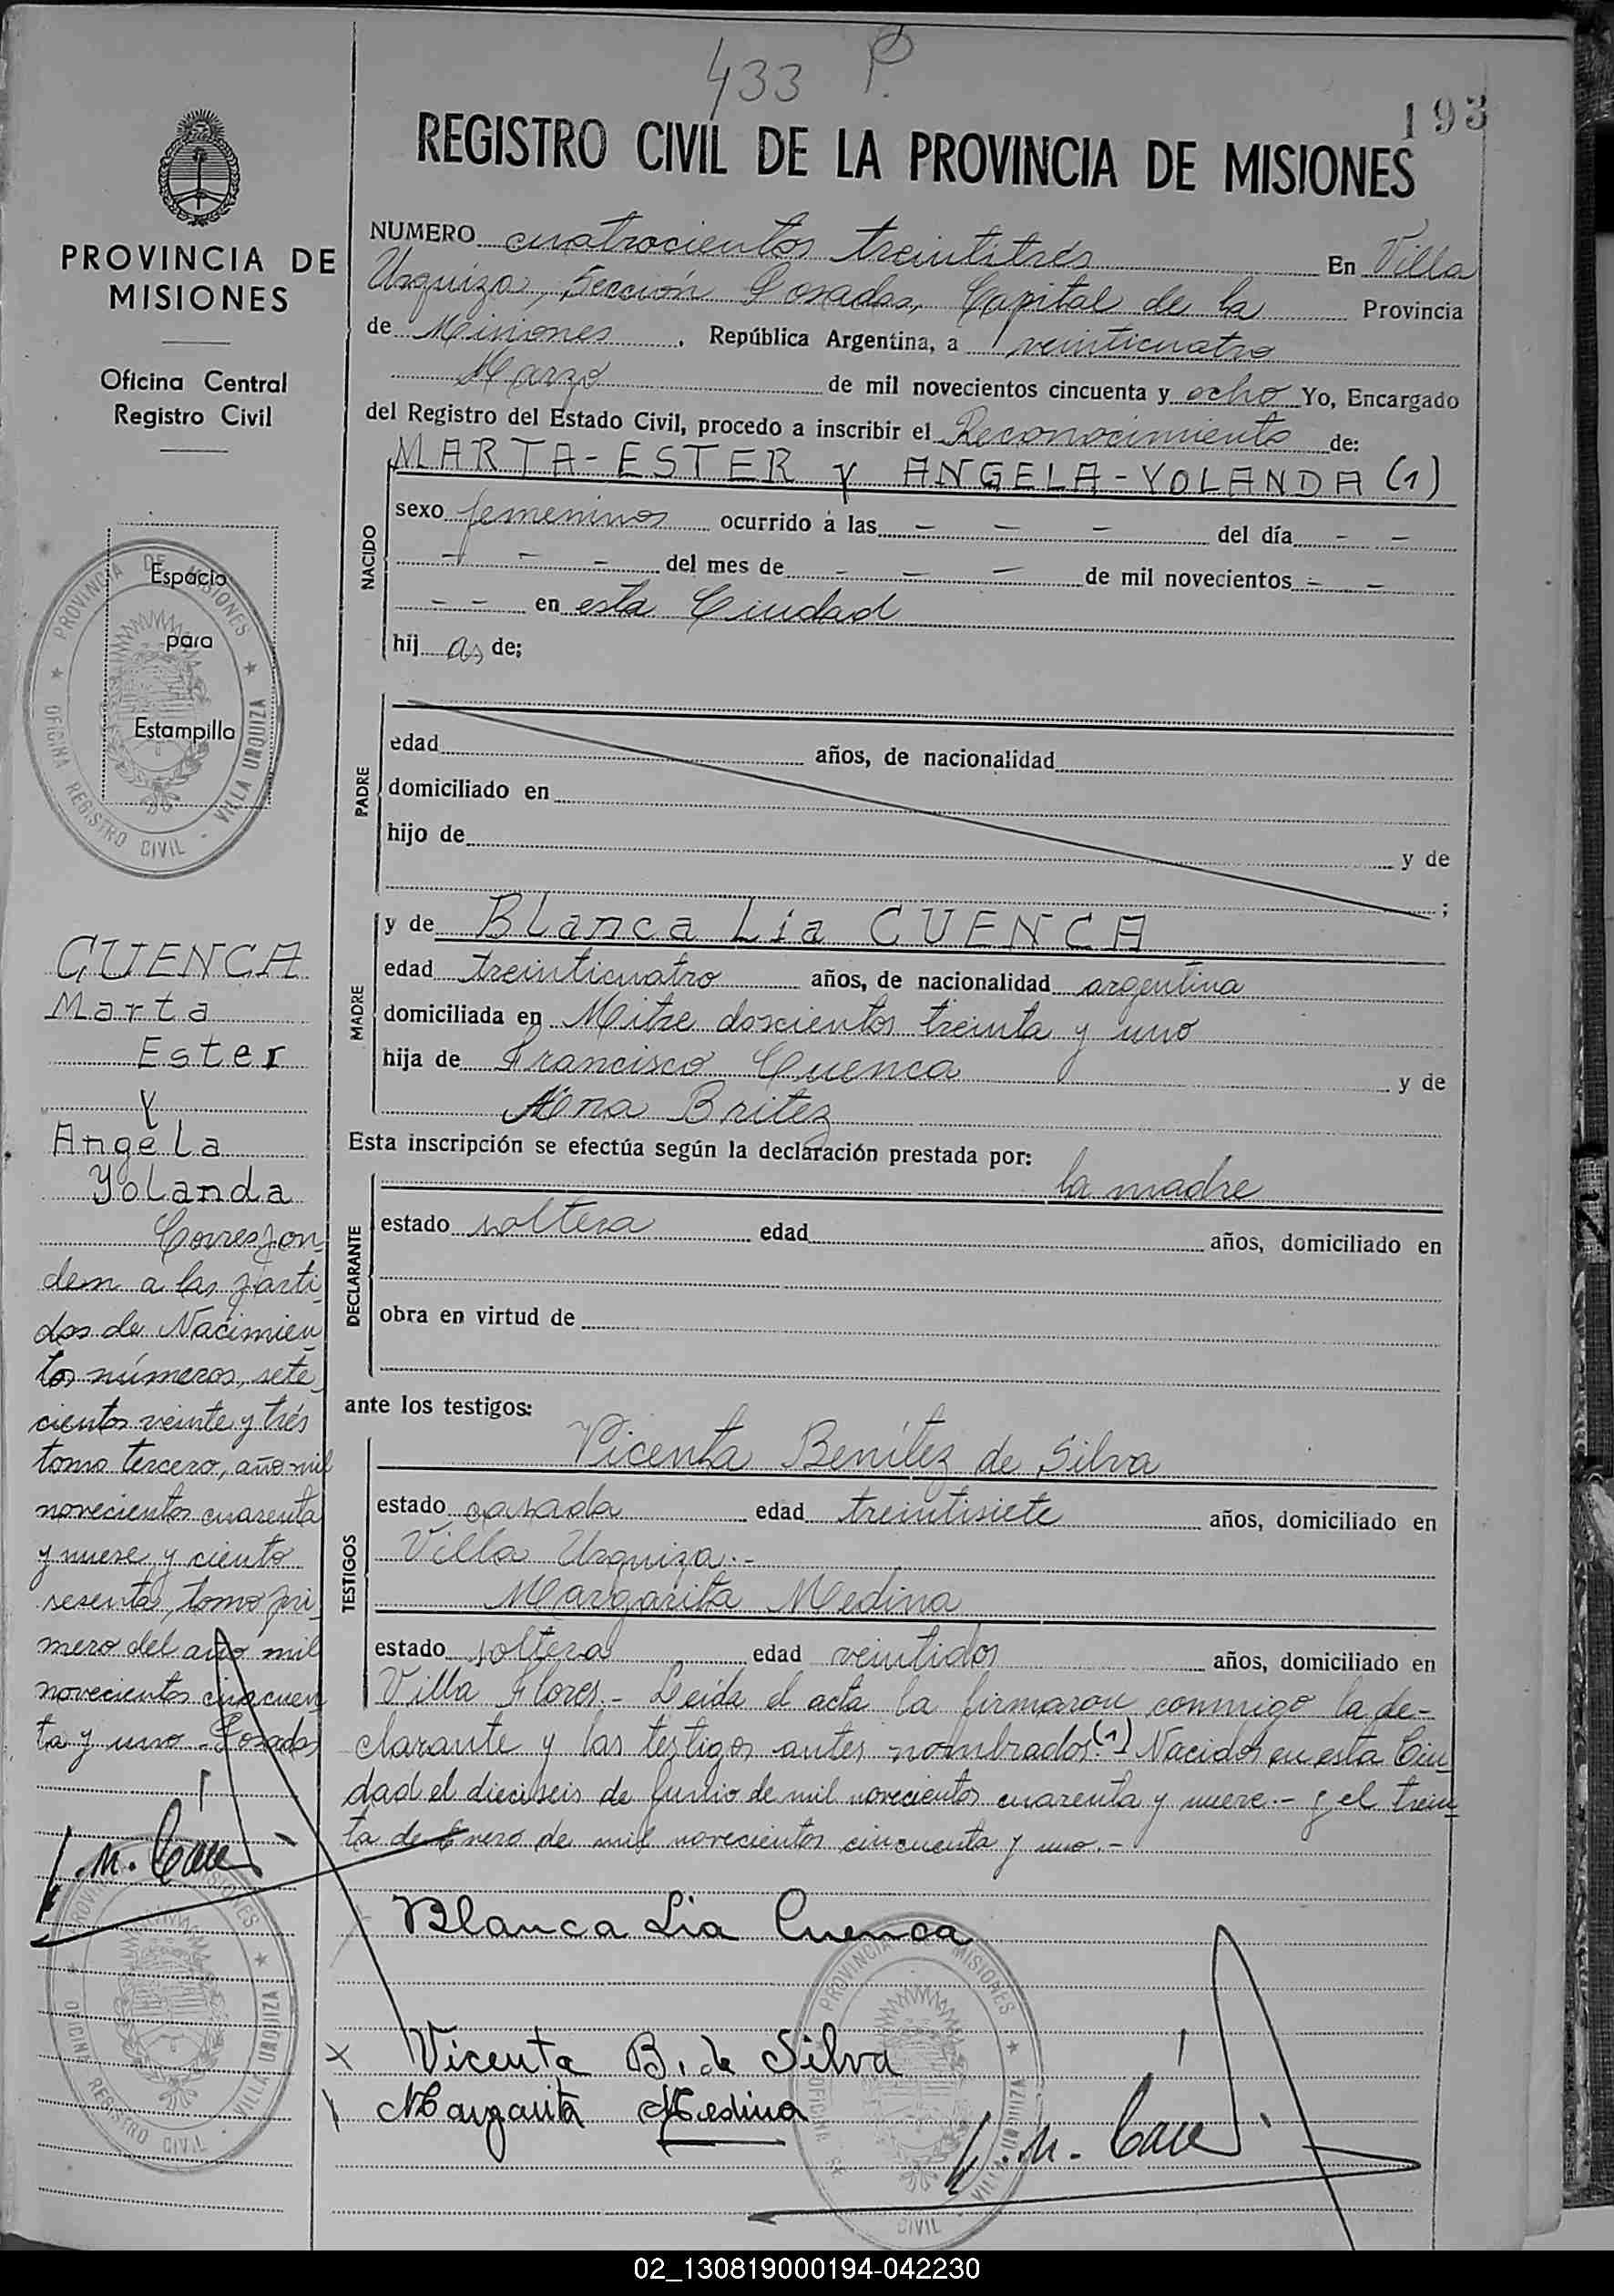 433 P.
193
REGISTRO CIVIL DE LA PROVINCIA DE MISIONES
PROVINCIA DE
MISIONES
Oficina Central
Registro Civil
Espacio
para
Estampilla
PROVINCIA DE MISIONES ★ VILLA URQUIZA - OFICINA REGISTRO CIVIL ★
NUMERO cuatrocientos treintitrés En Villa
Urquiza, Sección Posadas, Capital de la Provincia
de Misiones, República Argentina, a veinticuatro
Marzo de mil novecientos cincuenta y ocho Yo, Encargado
del Registro del Estado Civil, procedo a inscribir el Reconocimiento de:
MARTA-ESTER y ANGELA-YOLANDA (1)
NACIDO
sexo femeninos ocurrido a las - - - del día - -
- - - del mes de - - - de mil novecientos - -
- - en esta Ciudad
hij as de:
PADRE
edad años, de nacionalidad
domiciliado en
hijo de y de
;
MADRE
y de Blanca Lia CUENCA
edad treinticuatro años, de nacionalidad argentina
domiciliada en Mitre doscientos treinta y uno
hija de Francisco Cuenca y de
Ana Britez
Esta inscripción se efectúa según la declaración prestada por:
la madre
DECLARANTE
estado soltera edad años, domiciliado en
obra en virtud de
ante los testigos:
Vicenta Benítez de Silva
TESTIGOS
estado casada edad treintisiete años, domiciliado en
Villa Urquiza.-
Margarita Medina
estado soltera edad veintidos años, domiciliado en
Villa Flores.- Leída el acta la firmaron conmigo la de-
clarante y los testigos antes nombrados. (1) Nacidos en esta Ciu-
dad el dieciseis de Junio de mil novecientos cuarenta y nueve.- y el trein-
ta de Enero de mil novecientos cincuenta y uno.-
Blanca Lia Cuenca
Vicenta B. de Silva
Margarita Medina
CUENCA
Marta
Ester
y
Angela
Yolanda
Correspon-
den a las parti-
das de Nacimien-
tos números, sete-
cientos veinte y trés
tomo tercero, año mil
novecientos cuarenta
y nueve y ciento
sesenta, tomo pri-
mero del año mil
novecientos cincuen-
ta y uno - Posadas
PROVINCIA DE MISIONES ★ VILLA URQUIZA - OFICINA REGISTRO CIVIL ★
PROVINCIA DE MISIONES ★ VILLA URQUIZA - OFICINA REGISTRO CIVIL ★
02_130819000194-042230